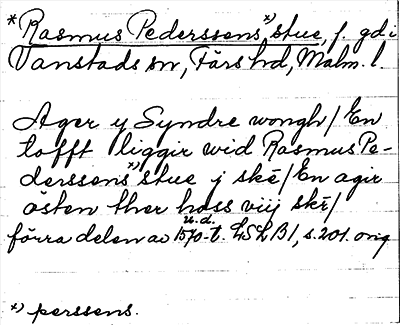 *Rasmus Pederssens*) stue, f. gd i
Vanstads sn, Färs hd, Malm. l.
Ager y Syndre wongh/ En
tofft liggir wid Rasmus Pe-
derssens*) stue j skē/ En agir
östen ther hoss viij skē/
förra delen av 1570-t. LSLB1, s. 201. orig
u.d.
*) perssens.